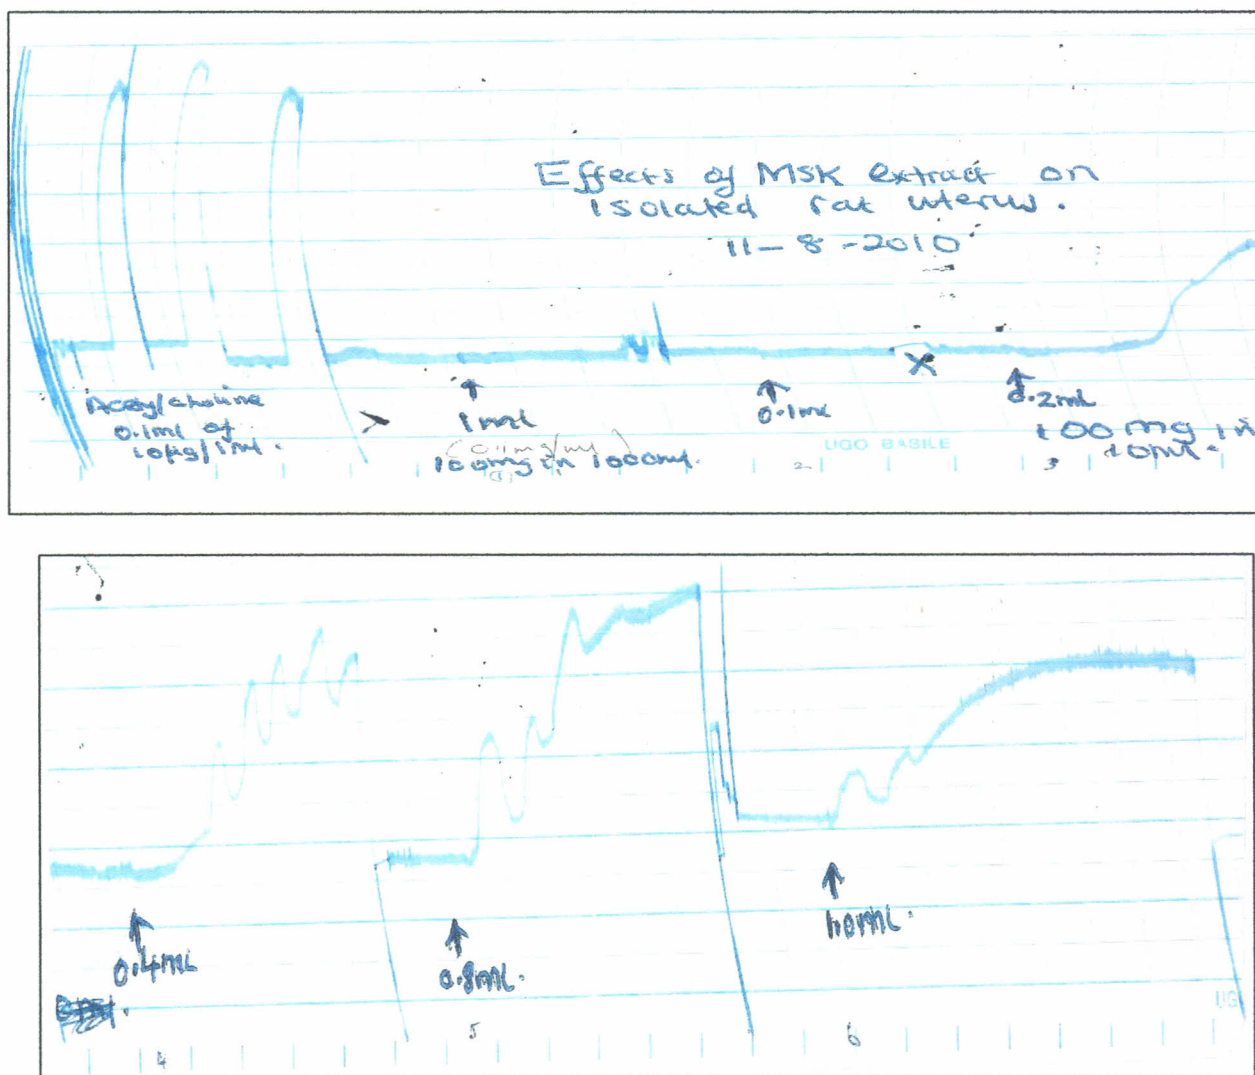 Effects of MSK extract on
isolated rat uterus.
11-8-2010
Acetylcholine
0.1ml of
10µg/1ml.
1ml
(0.1mg/ml)
100mg in 1000ml.
(1)
0.1ml
X
0.2ml
100mg in
10ml.
UGO BASILE
2
3
0.4ml
0.8ml.
1.0ml.
UG
4
5
6